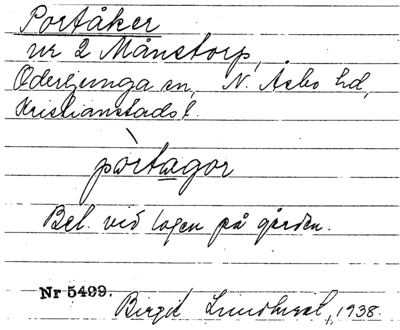 Portåker
nr 2 Månstorp,
Oderljunga sn, N. Åsbo hd,
Kristianstads l.
pòrtagor
Bel. vid logen på gården.
Nr 5499.
Birgit 1938.